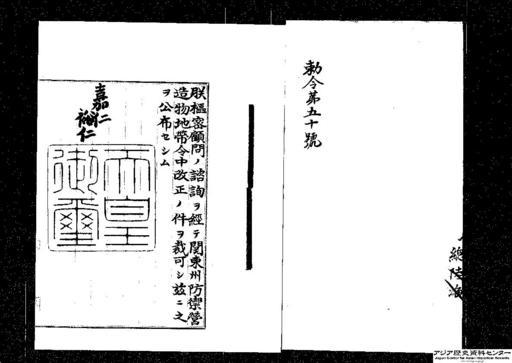 勅令第五十號
朕樞密顧問ノ諮詢ヲ經テ關東州防禦營
造物地帶令中改正ノ件ヲ裁可シ茲ニ之
ヲ公布セシム
嘉仁
裕仁
天皇
御璽
總
陸
アジア歴史資料センター
Japan Center for Asian Historical Records